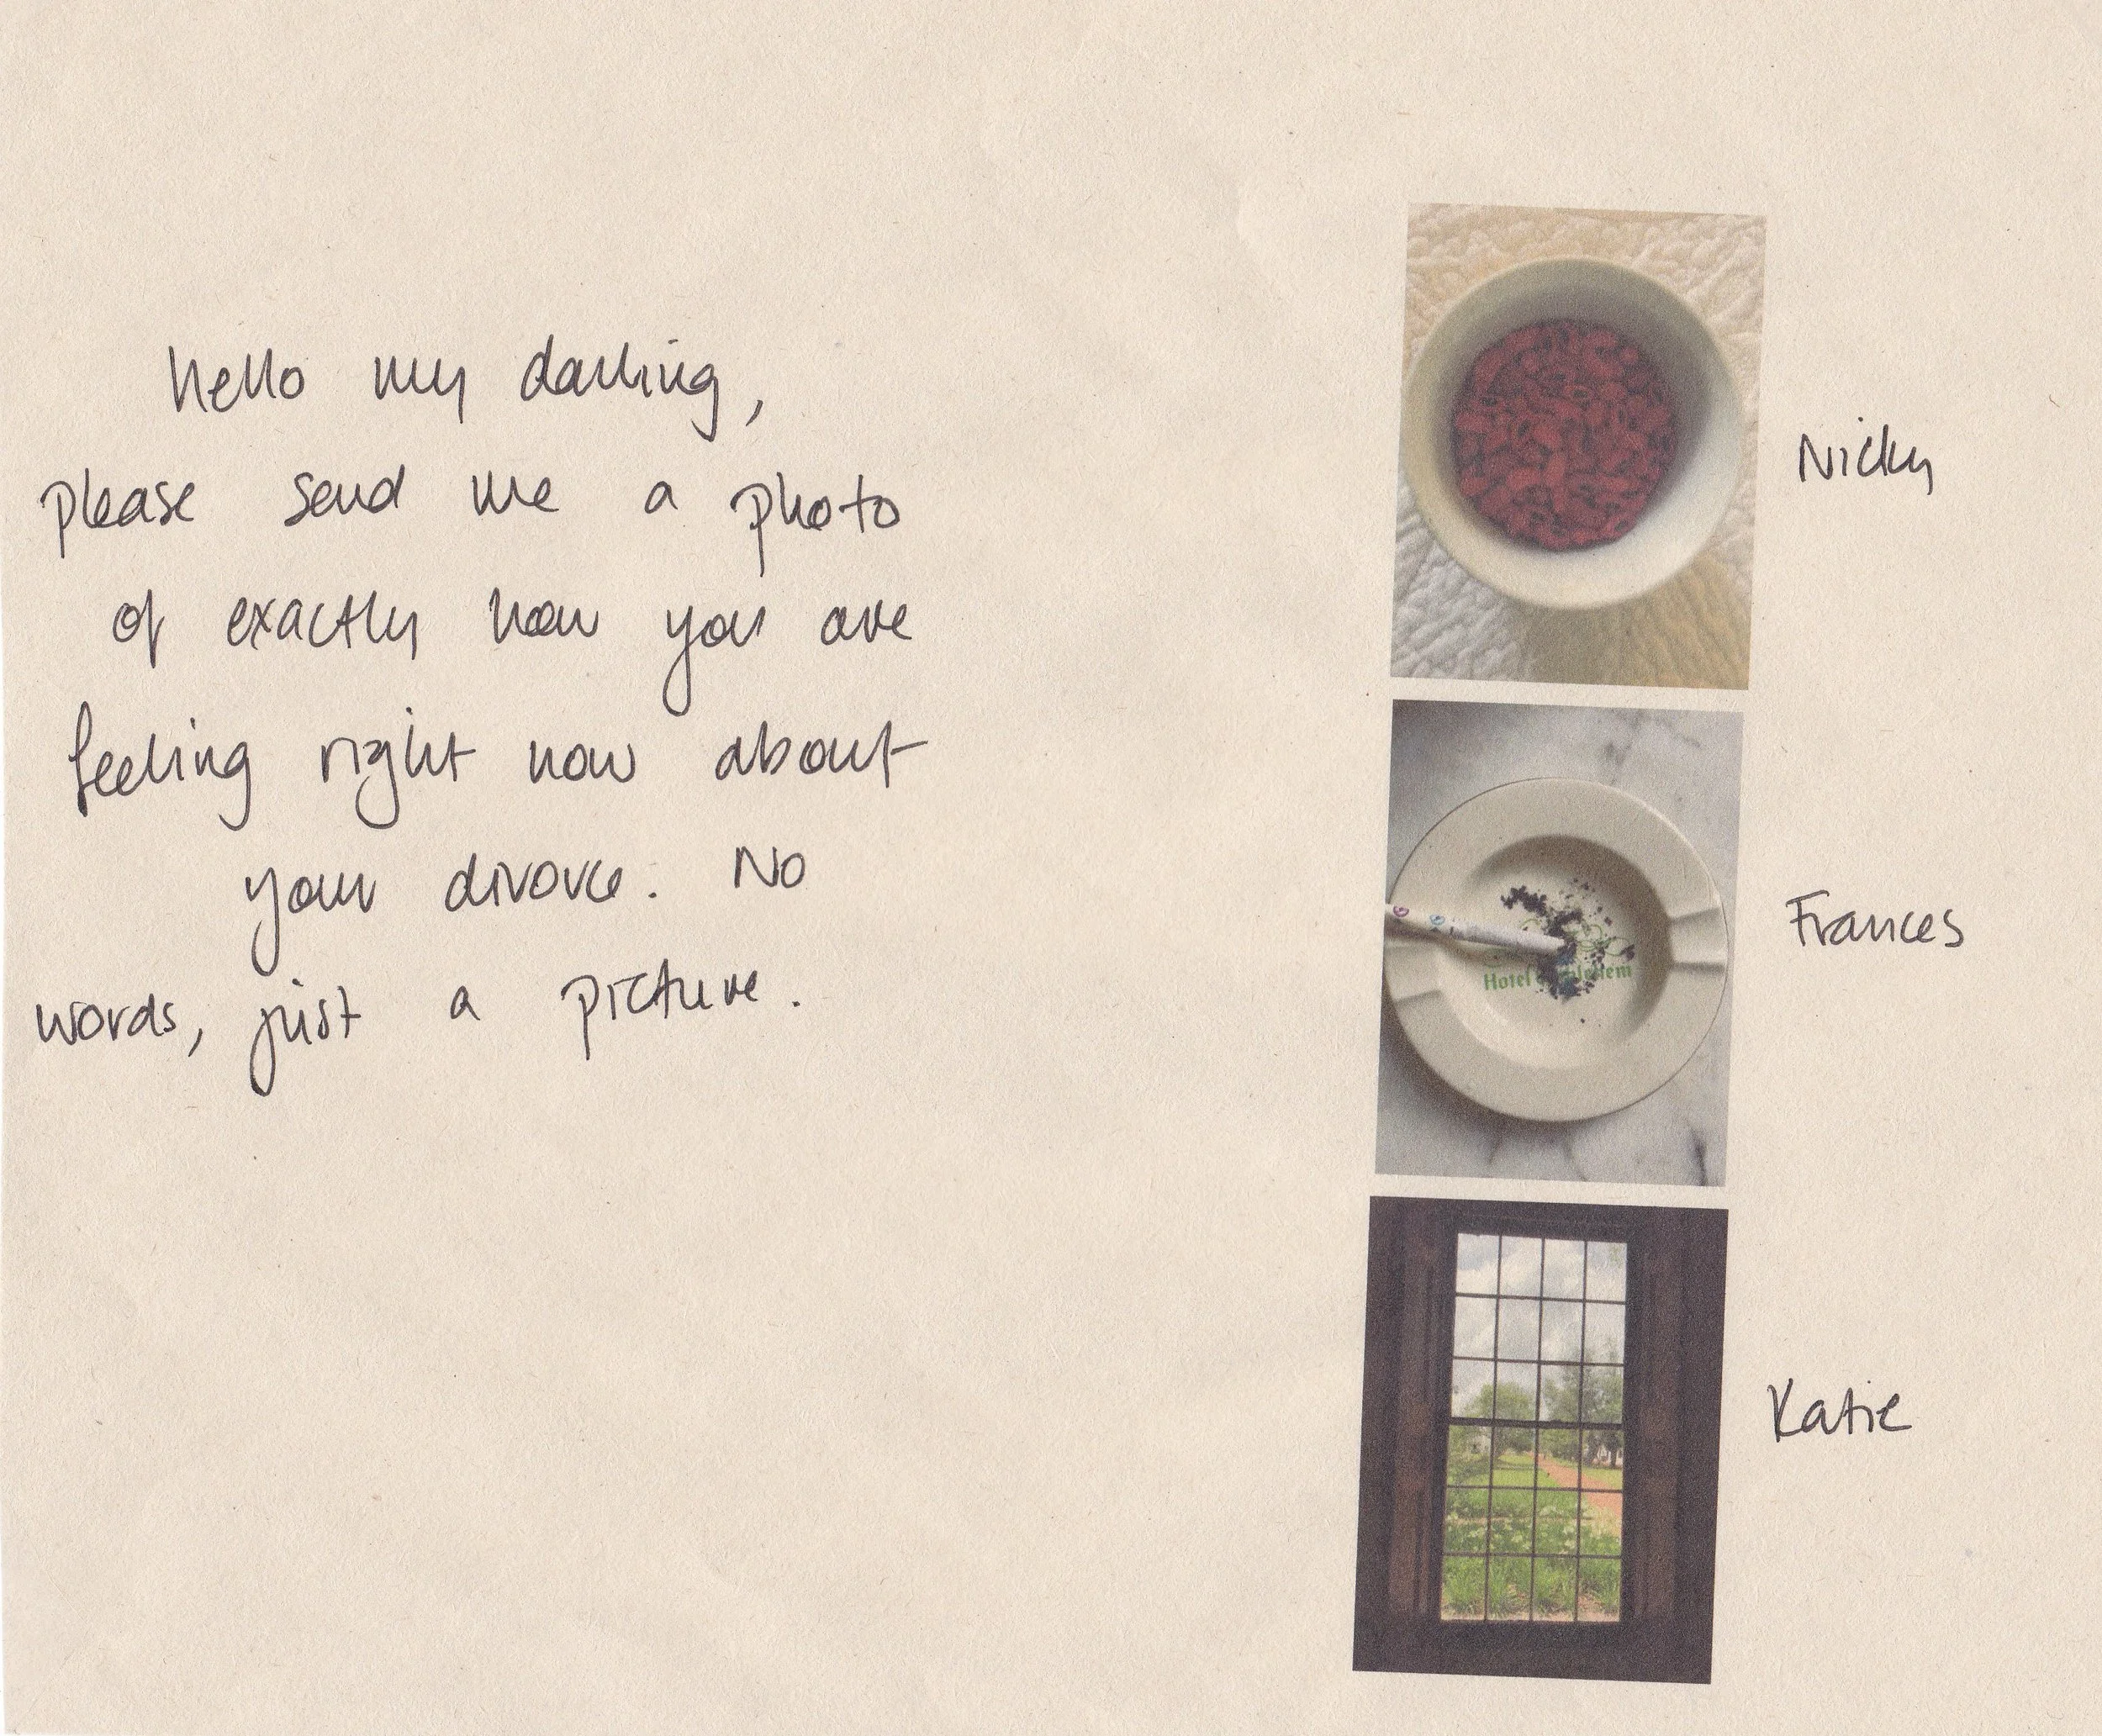 hello my darling,
please send me a photo
of exactly how you are
feeling right now about
your divorce. No
words, just a picture.
Nicky
Hotel
Frances
Katie